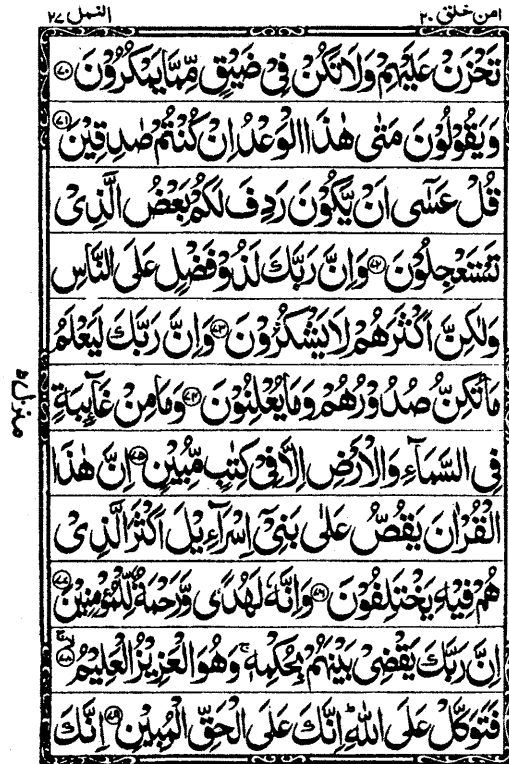 امن خلق ٢٠ النمل ٢٧
تَحْزَنْ عَلَيْهِمْ وَلَا تَكُنْ فِىْ ضَيْقٍ مِّمَّا يَمْكُرُوْنَ ۝٧٠
وَيَقُوْلُوْنَ مَتٰى هٰذَا الْوَعْدُ اِنْ كُنْتُمْ صٰدِقِيْنَ ۝٧١
قُلْ عَسٰٓى اَنْ يَّكُوْنَ رَدِفَ لَكُمْ بَعْضُ الَّذِىْ
تَسْتَعْجِلُوْنَ ۝٧٢ وَاِنَّ رَبَّكَ لَذُوْ فَضْلٍ عَلَى النَّاسِ
وَلٰكِنَّ اَكْثَرَهُمْ لَا يَشْكُرُوْنَ ۝٧٣ وَاِنَّ رَبَّكَ لَيَعْلَمُ
مَا تُكِنُّ صُدُوْرُهُمْ وَمَا يُعْلِنُوْنَ ۝٧٤ وَمَا مِنْ غَآئِبَةٍ
فِى السَّمَآءِ وَالْاَرْضِ اِلَّا فِىْ كِتٰبٍ مُّبِيْنٍ ۝٧٥ اِنَّ هٰذَا
الْقُرْاٰنَ يَقُصُّ عَلٰى بَنِىْٓ اِسْرَآءِيْلَ اَكْثَرَ الَّذِىْ
هُمْ فِيْهِ يَخْتَلِفُوْنَ ۝٧٦ وَاِنَّهٗ لَهُدًى وَّرَحْمَةٌ لِّلْمُؤْمِنِيْنَ ۝٧٧
اِنَّ رَبَّكَ يَقْضِىْ بَيْنَهُمْ بِحُكْمِهٖ ۚ وَهُوَ الْعَزِيْزُ الْعَلِيْمُ ۝٧٨
فَتَوَكَّلْ عَلَى اللّٰهِ ؕ اِنَّكَ عَلَى الْحَقِّ الْمُبِيْنِ ۝٧٩ اِنَّكَ
منزل ٥